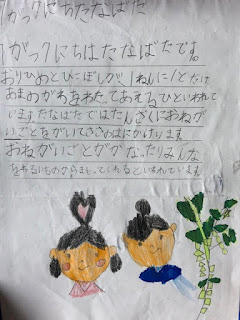 7がつ7にちたなばた
7がつ7にちはたなばたです。
おりひめとひこぼしが1ねんに1どだけ
あまのがわをわたってあえるひといわれて
います。たなばたではたんざくにおねが
いごとをかいてささのはにかけます
おねがいごとがかなったりみんな
をわるいものからまもってくれるといわれています